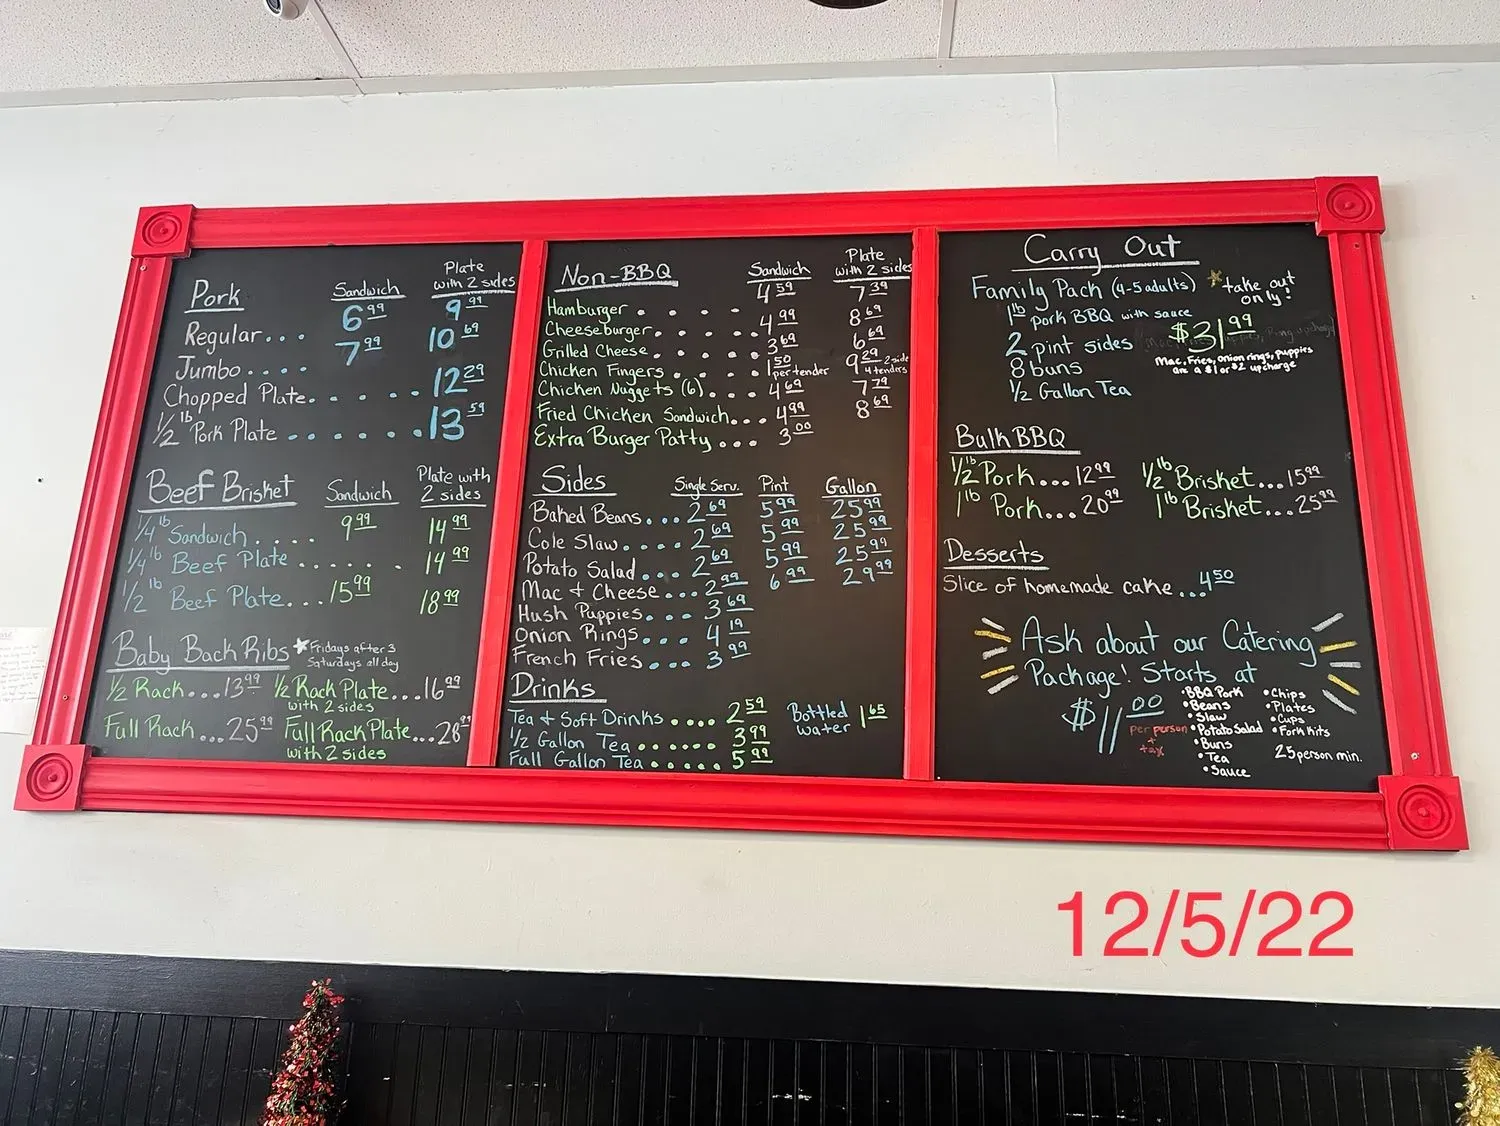 Pork Sandwich Plate with 2 sides
Regular... 6.99 9.99
Jumbo.... 7.99 10.69
Chopped Plate....... 12.29
1/2 lb Pork Plate ....... 13.59
Beef Brisket Sandwich Plate with 2 sides
1/4 lb Sandwich.... 9.99 14.99
1/4 lb Beef Plate ...... 14.99
1/2 lb Beef Plate... 15.99 18.99
Baby Back Ribs ★ Fridays after 3
Saturdays all day
1/2 Rack...13.99 1/2 Rack Plate...16.99
with 2 sides
Full Rack...25.99 Full Rack Plate...28.99
with 2 sides
Non-BBQ Sandwich Plate with 2 sides
Hamburger .... 4.59 7.39
Cheeseburger.... 4.99 8.69
Grilled Cheese.... 3.69 6.69
Chicken Fingers.... 1.50 per tender 9.29 2 side 4 tenders
Chicken Nuggets (6)... 4.69 7.79
Fried Chicken Sandwich... 4.99 8.69
Extra Burger Patty ... 3.00
Sides Single Serv. Pint Gallon
Baked Beans... 2.69 5.99 25.99
Cole Slaw.... 2.69 5.99 25.99
Potato Salad... 2.69 5.99 25.99
Mac + Cheese... 2.99 6.99 29.99
Hush Puppies. 3.69
Onion Rings... 4.19
French Fries... 3.99
Drinks
Tea + Soft Drinks .... 2.59 Bottled water 1.65
1/2 Gallon Tea ...... 3.99
Full Gallon Tea ..... 5.99
Carry Out
Family Pack (4-5 adults) ★ take out only!
1 lb pork BBQ with sauce
2 pint sides $31.99
Mac, Fries, onion rings, puppies
are a $1 or $2 upcharge
8 buns
1/2 Gallon Tea
Bulk BBQ
1/2 lb Pork... 12.99 1/2 lb Brisket...15.99
1 lb Pork... 20.99 1 lb Brisket...25.99
Desserts
Slice of homemade cake...4.50
Ask about our Catering
Package! Starts at
$11.00 per person + tax
• BBQ Pork • Chips
• Beans • Plates
• Slaw • Cups
• Potato Salad • Fork Kits
• Buns
• Tea 25 person min.
• Sauce
12/5/22